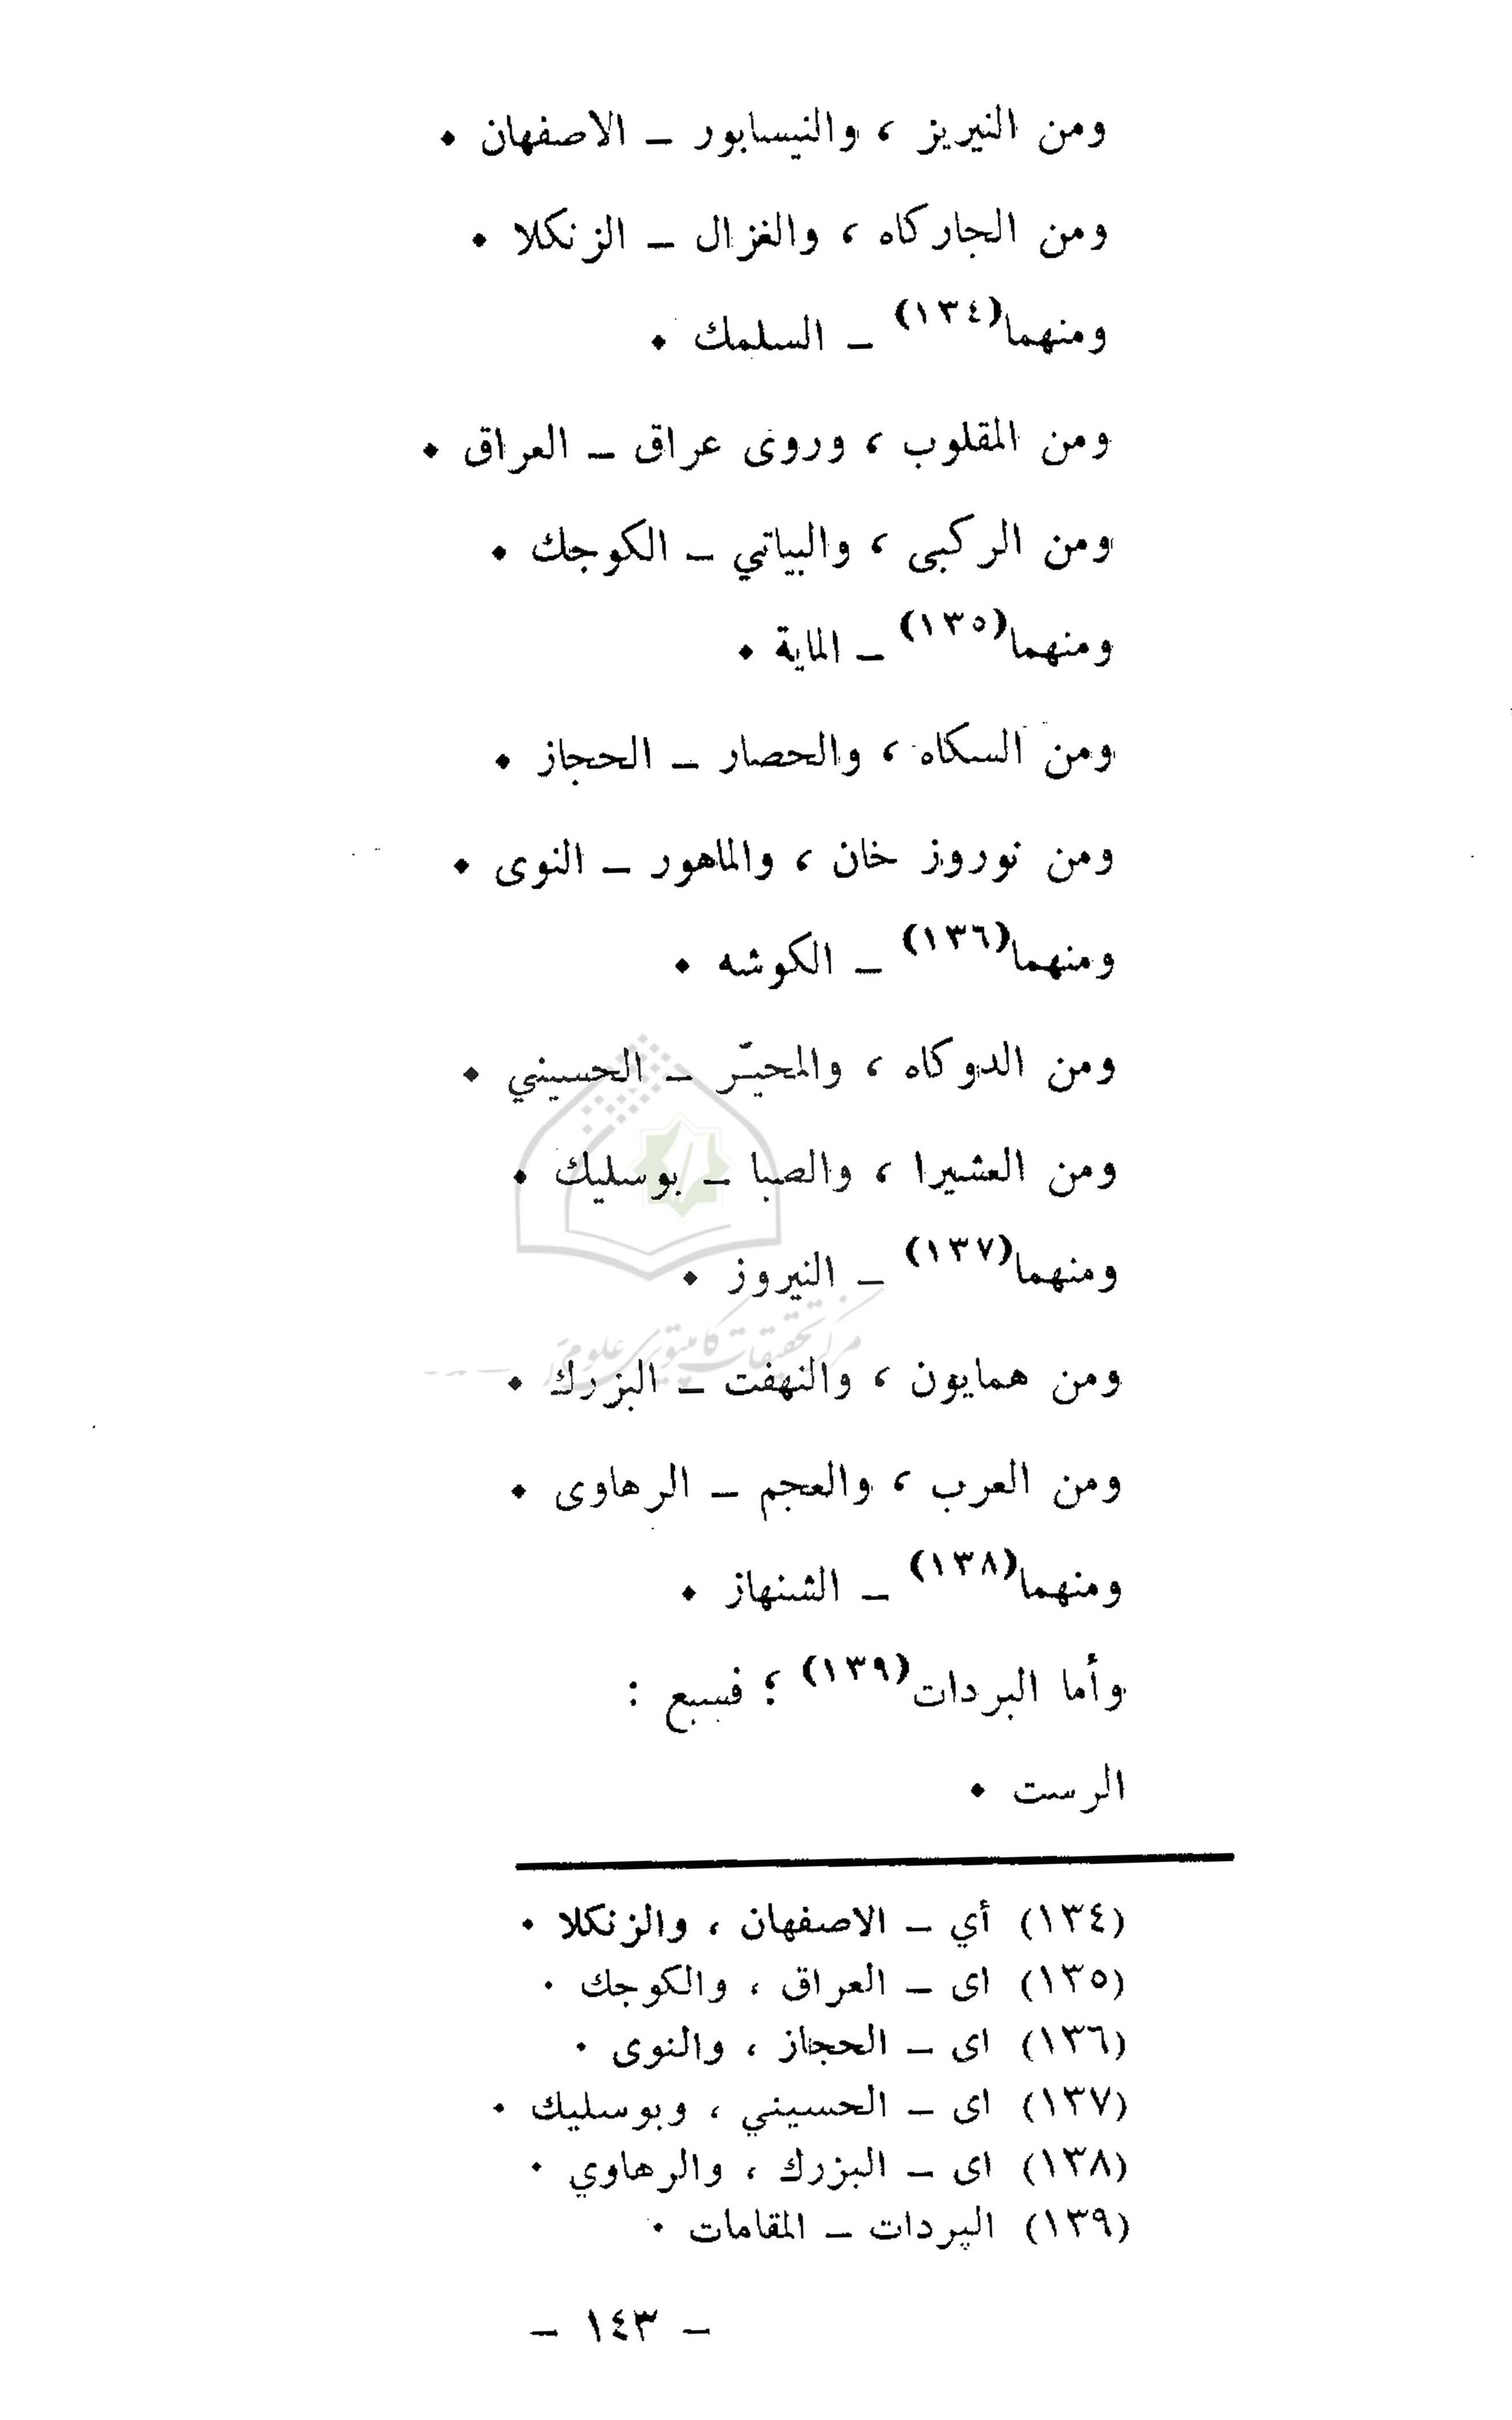 ومن النيريز ، والنيسابور – الاصفهان •
ومن الجاركاه ، والغزال – الزنكلا •
ومنهما(١٣٤) – السلمك •
ومن المقلوب ، وروى عراق – العراق •
ومن الركبى ، والبياتي – الكوجك •
ومنهما(١٣٥) – الماية •
ومن السكاه ، والحصار – الحجاز •
ومن نوروز خان ، والماهور – النوى •
ومنهما(١٣٦) – الكوشه •
ومن الدوكاه ، والمحيّر – الحسيني •
ومن العشيرا ، والصبا – بوسليك •
ومنهما(١٣٧) – النيروز •
مركز تحقيقات كامپيوتری علوم
ومن همايون ، والنهفت – البزرك •
ومن العرب ، والعجم – الرهاوى •
ومنهما(١٣٨) – الشنهاز •
وأما البردات(١٣٩) ؛ فسبع :
الرست •
(١٣٤) أي – الاصفهان ، والزنكلا •
(١٣٥) اى – العراق ، والكوجك •
(١٣٦) اى – الحجاز ، والنوى •
(١٣٧) اى – الحسيني ، وبوسليك •
(١٣٨) اى – البزرك ، والرهاوي •
(١٣٩) الپردات – المقامات •
– ١٤٣ –